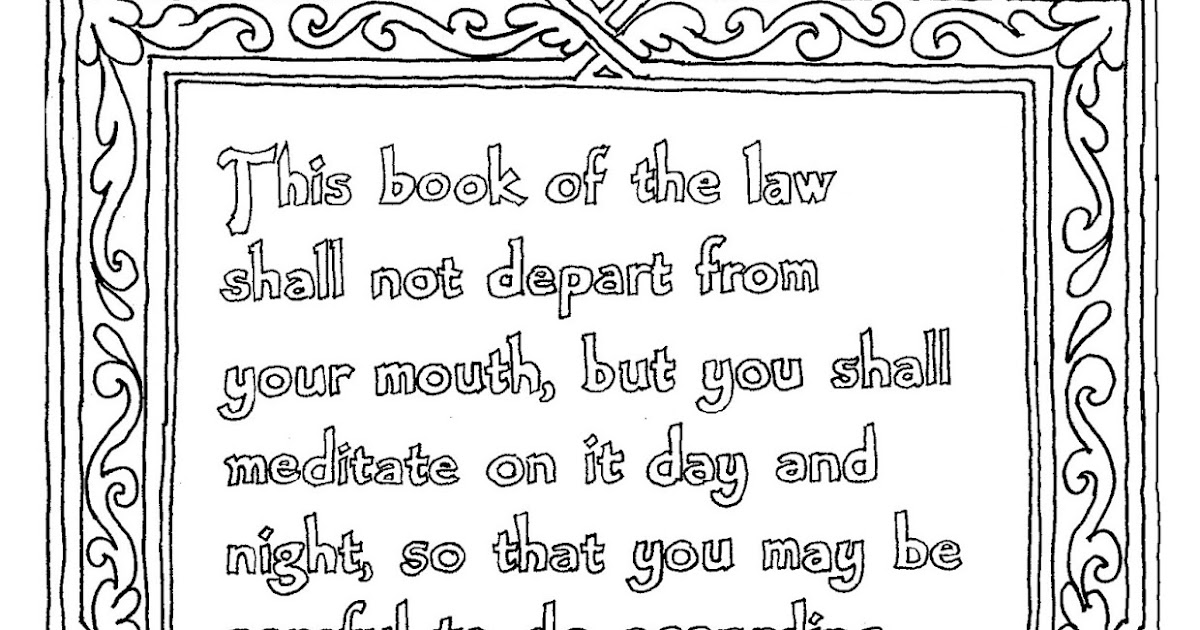 This book of the law
shall not depart from
your mouth, but you shall
meditate on it day and
night, so that you may be
careful to do according